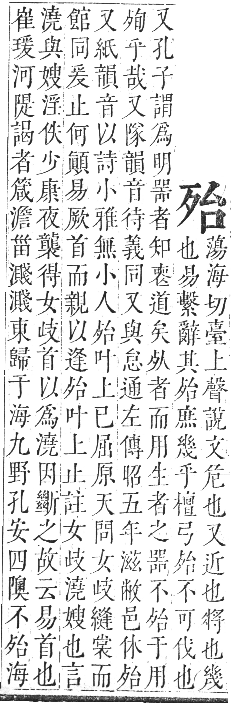 殆
蕩海切臺上聲說文危也又近也將也幾
也易繫辭其殆庶幾乎檀弓殆不可伐也
又孔子謂爲明器者知喪道矣死者而用生者之器不殆于用
殉乎哉又隊韻音待義同又與怠通左傳昭五年滋敝邑休殆
又紙韻音以詩小雅無小人殆叶上已屈原天問女歧縫裳而
館同爰止何顛易厥首而親以逢殆叶上止註女歧澆嫂也言
澆與嫂淫佚少康夜襲得女歧首以爲澆因斷之故云易首也
崔瑗河隄謁者箴澹菑濺濺東歸于海九野孔安四隩不殆海